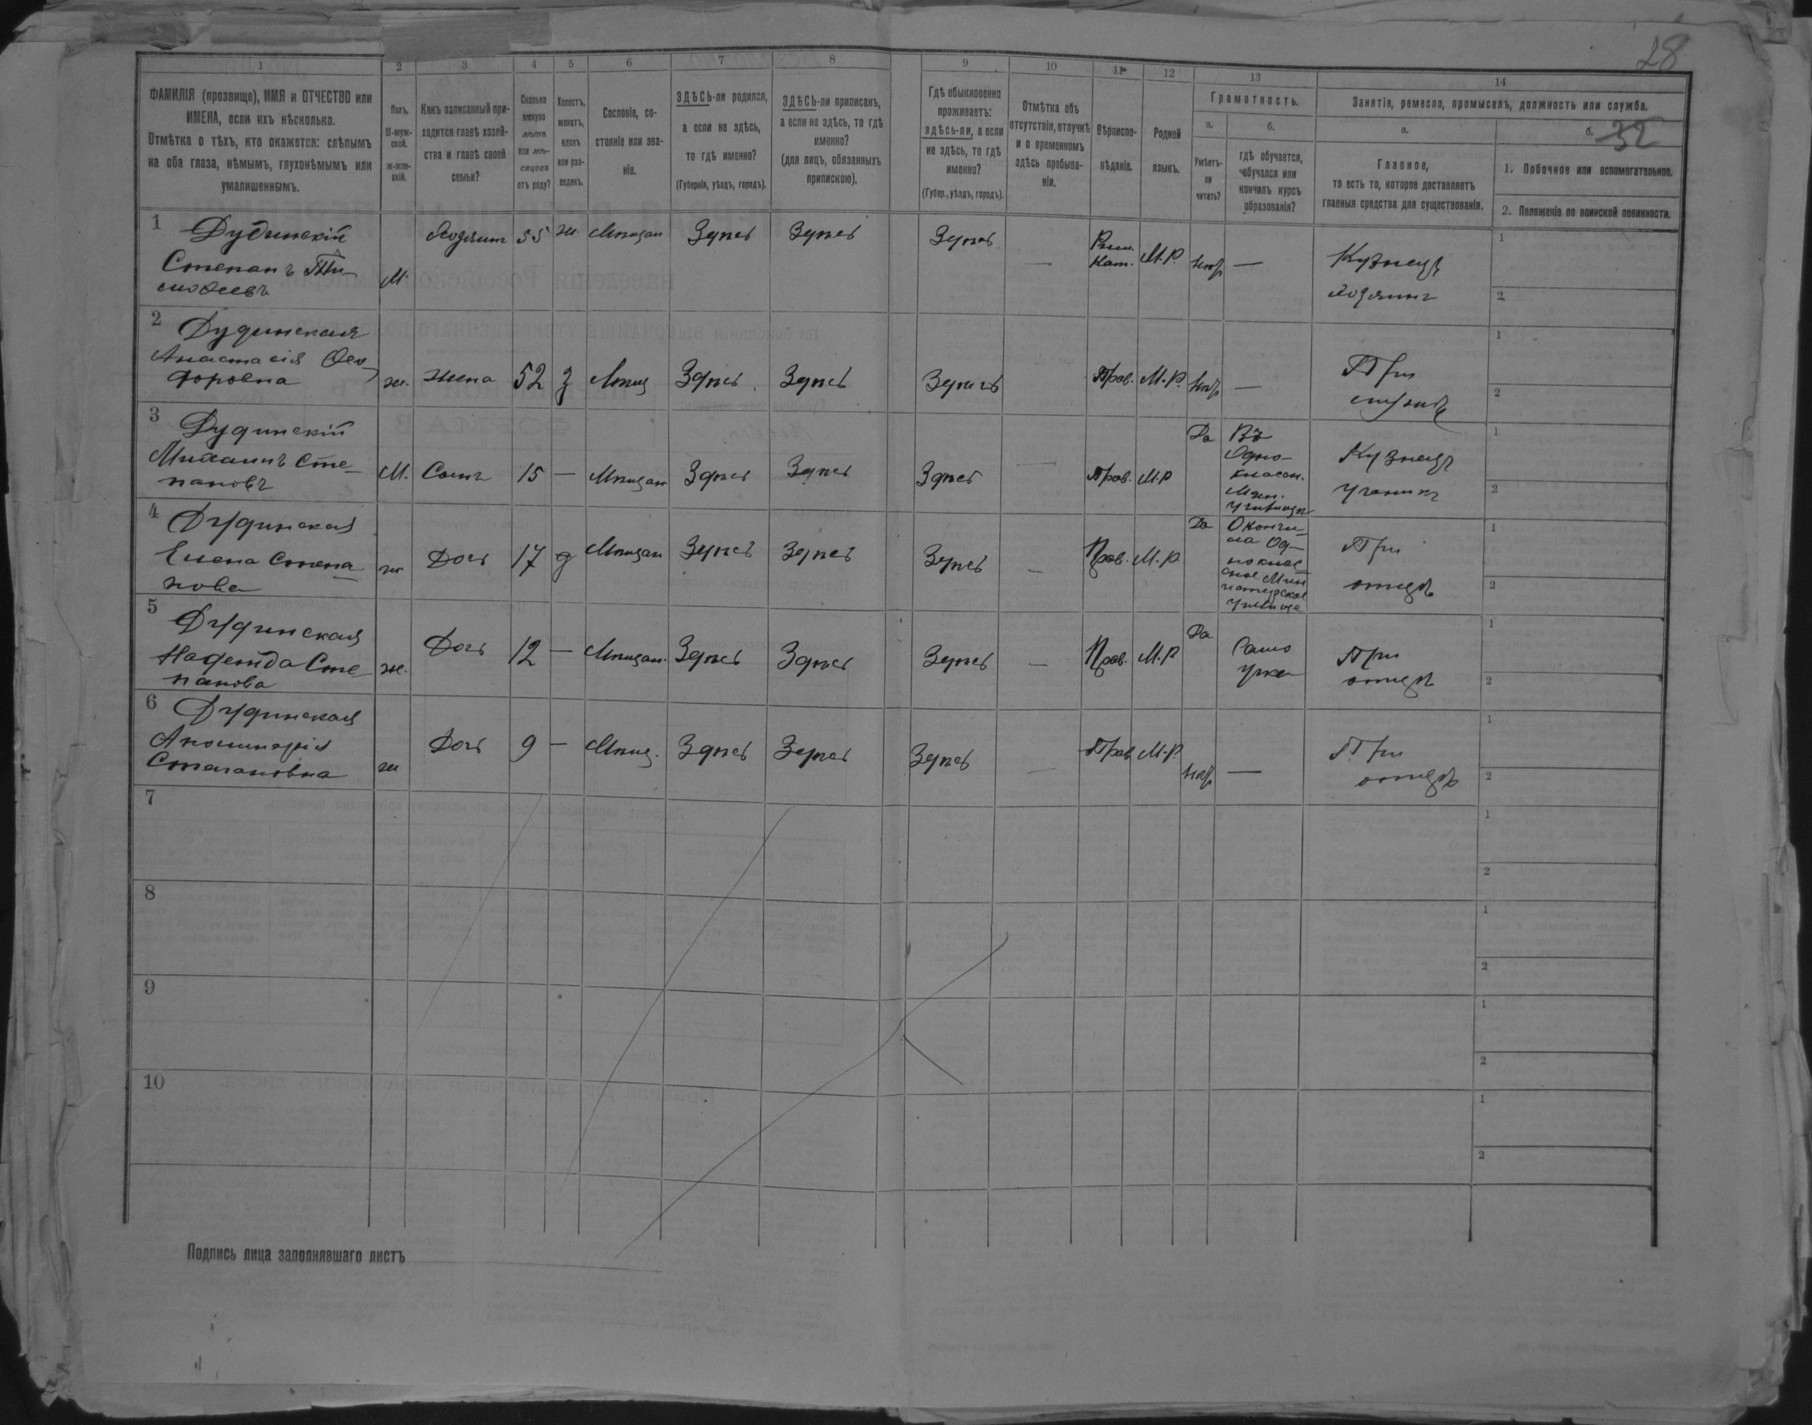 28
1
2
3
4
5
6
7
8
9
10
11
12
13
14
ФАМИЛІЯ (прозвище), ИМЯ и ОТЧЕСТВО или
ИМЕНА, если ихъ нѣсколько.
Отмѣтка о тѣхъ, кто окажется: слѣпымъ
на оба глаза, нѣмымъ, глухонѣмымъ или
умалишеннымъ.
Полъ.
М-муж-
ской.
Ж-жен-
скій.
Какъ записанный при-
ходится главѣ хозяй-
ства и главѣ своей
семьи?
Сколько
минуло
лѣтъ
или мѣ-
сяцевъ
отъ роду?
Холостъ,
женатъ,
вдовъ
или раз-
веденъ.
Сословіе, со-
стояніе или зва-
ніе.
ЗДѢСЬ-ли родился,
а если не здѣсь,
то гдѣ именно?
(Губернія, уѣздъ, городъ).
ЗДѢСЬ-ли приписанъ,
а если не здѣсь, то гдѣ
именно?
(для лицъ, обязанныхъ
припискою).
Гдѣ обыкновенно
проживаетъ:
здѣсь-ли, а если
не здѣсь, то гдѣ
именно?
(Губер., уѣздъ, городъ).
Отмѣтка объ
отсутствіи, отлучкѣ
и о временномъ
здѣсь пребыва-
ніи.
Вѣроиспо-
вѣданіе.
Родной
языкъ.
Грамотность.
а.
б.
Умѣетъ-
ли
читать?
гдѣ обучается,
обучался или
кончилъ курсъ
образованія?
Занятіе, ремесло, промыселъ, должность или служба.
а.
б.
32
Главное,
то есть то, которое доставляетъ
главныя средства для существованія.
1. Побочное или вспомогательное.
2. Положеніе по воинской повинности.
1
Дубинскій
Степанъ Ти-
мофеевъ
М.
Хозяинъ
55
ж
Мѣщан
Здѣсь
Здѣсь
Здѣсь
—
Рим.
Кат.
М.Р.
нѣт
—
Кузнецъ
хозяинъ
1
2
2
Дудинская
Анастасія Ѳео-
доровна
ж.
жена
52
з
Мѣщ
Здѣсь
Здѣсь
Здѣсь
Прав.
М.Р.
нѣт
—
При
мужѣ
1
2
3
Дудинскій
Михаилъ Сте-
пановъ
М.
Сынъ
15
—
Мѣщан
Здѣсь
Здѣсь
Здѣсь
—
Прав.
М.Р
Да
Въ
Одно-
классн.
Мин.
училищѣ
Кузнецъ
ученикъ
1
2
4
Дудинская
Елена Степа-
нова
ж
Дочь
17
д
Мѣщан
Здѣсь
Здѣсь
Здѣсь
—
Прав.
М.Р
Да
Окончи-
ла Од-
нокла-
сное Мин
истерское
училище
При
отцѣ
1
2
5
Дудинская
Надежда Сте-
панова
ж.
Дочь
12
—
Мѣщан.
Здѣсь
Здѣсь
Здѣсь
—
Прав.
М.Р
Да
Само
учка
При
отцѣ
1
2
6
Дудинская
Аполинарія
Степановна
ж
Дочь
9
—
Мѣщ.
Здѣсь
Здѣсь
Здѣсь
—
Прав
М.Р.
нѣт
—
При
отцѣ
1
2
7
1
2
8
1
2
9
1
2
10
1
2
Подпись лица заполнявшаго листъ